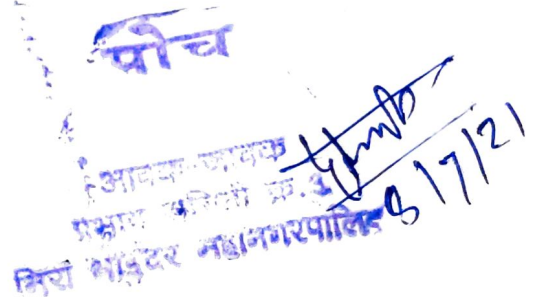 पोच
आवक-जावक
प्रभाग समिती क्र.
मिरा भाईंदर महानगरपालिका
8/7/21